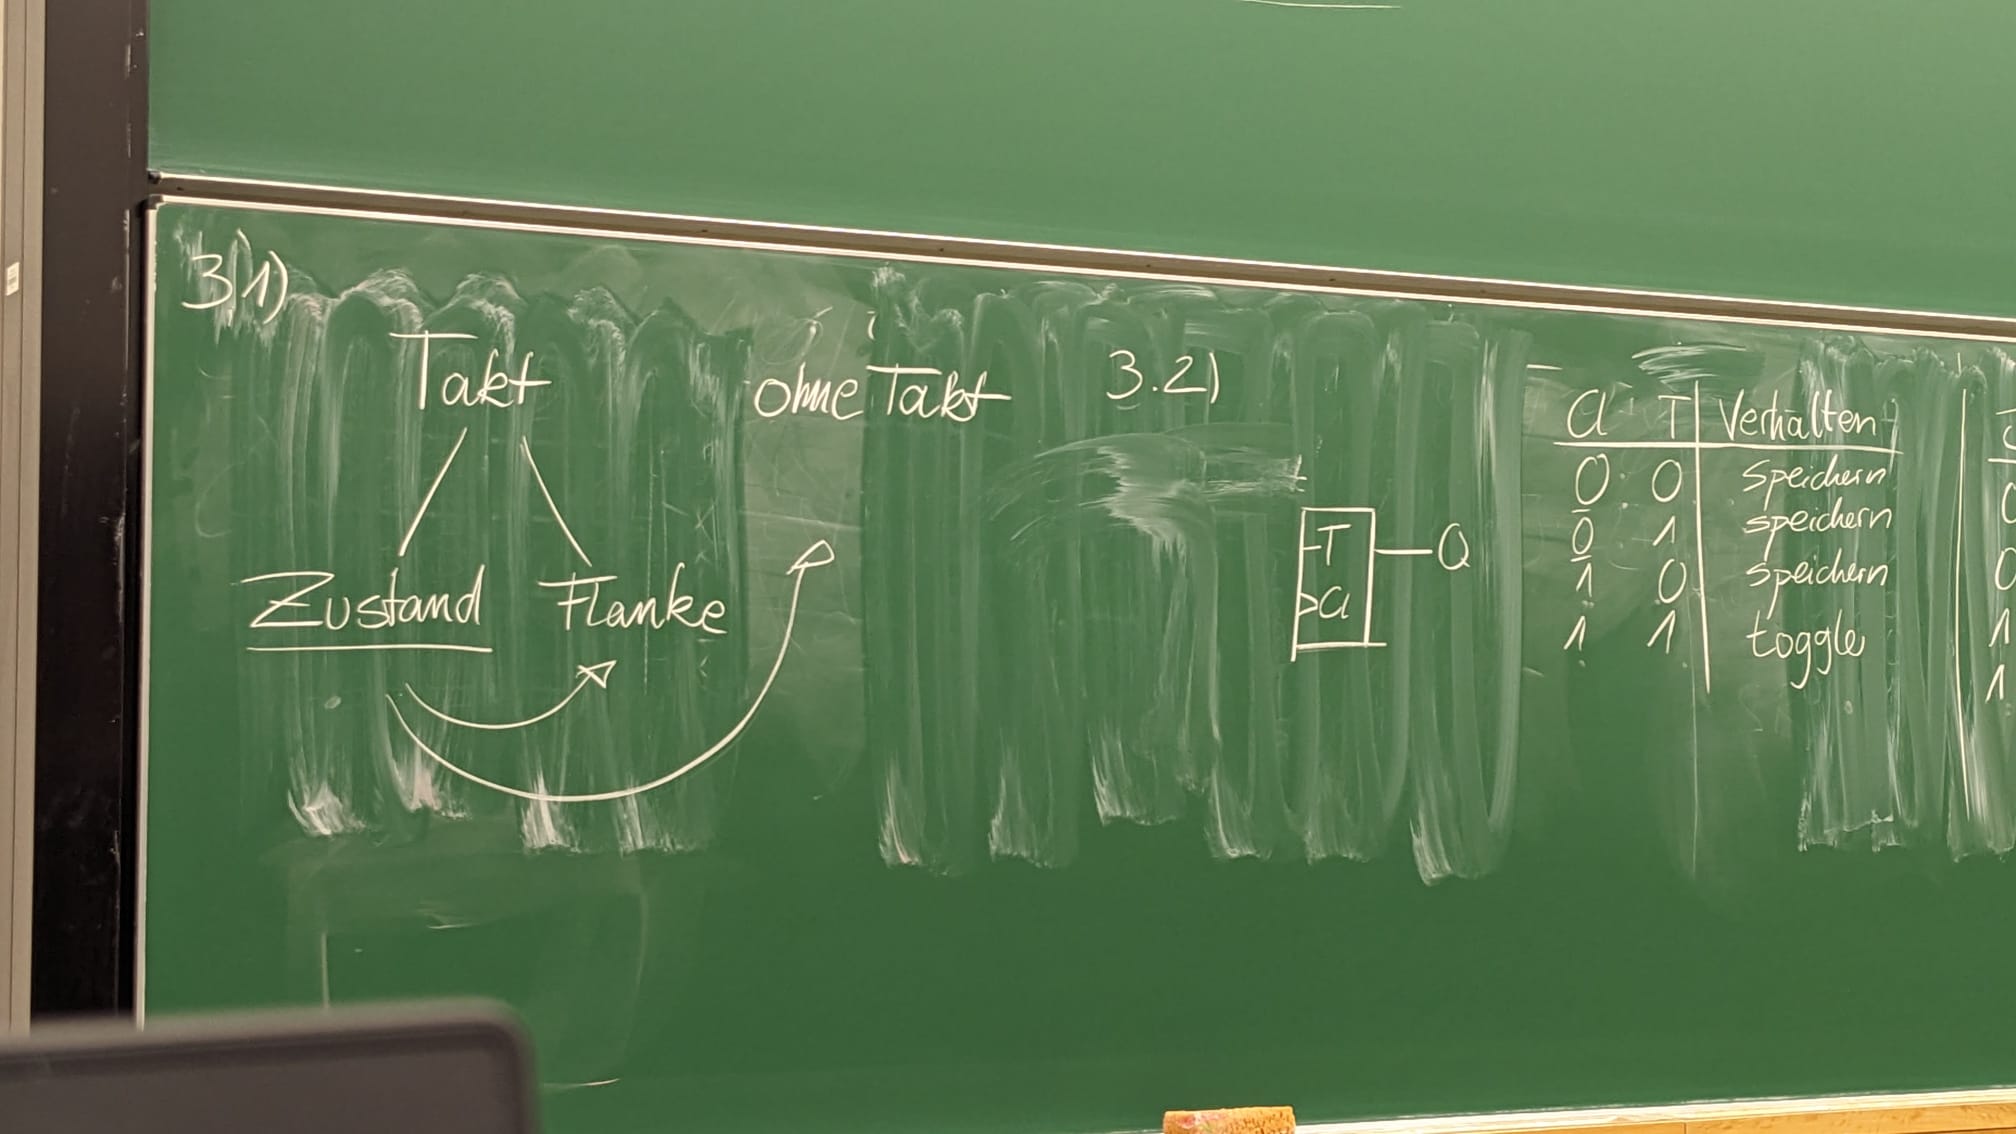 3.1)
Takt
ohne Takt
Zustand
Flanke
3.2)
T
Cl
Q
Cl T Verhalten
0 0 speichern
0 1 speichern
1 0 speichern
1 1 toggle
0
0
1
1